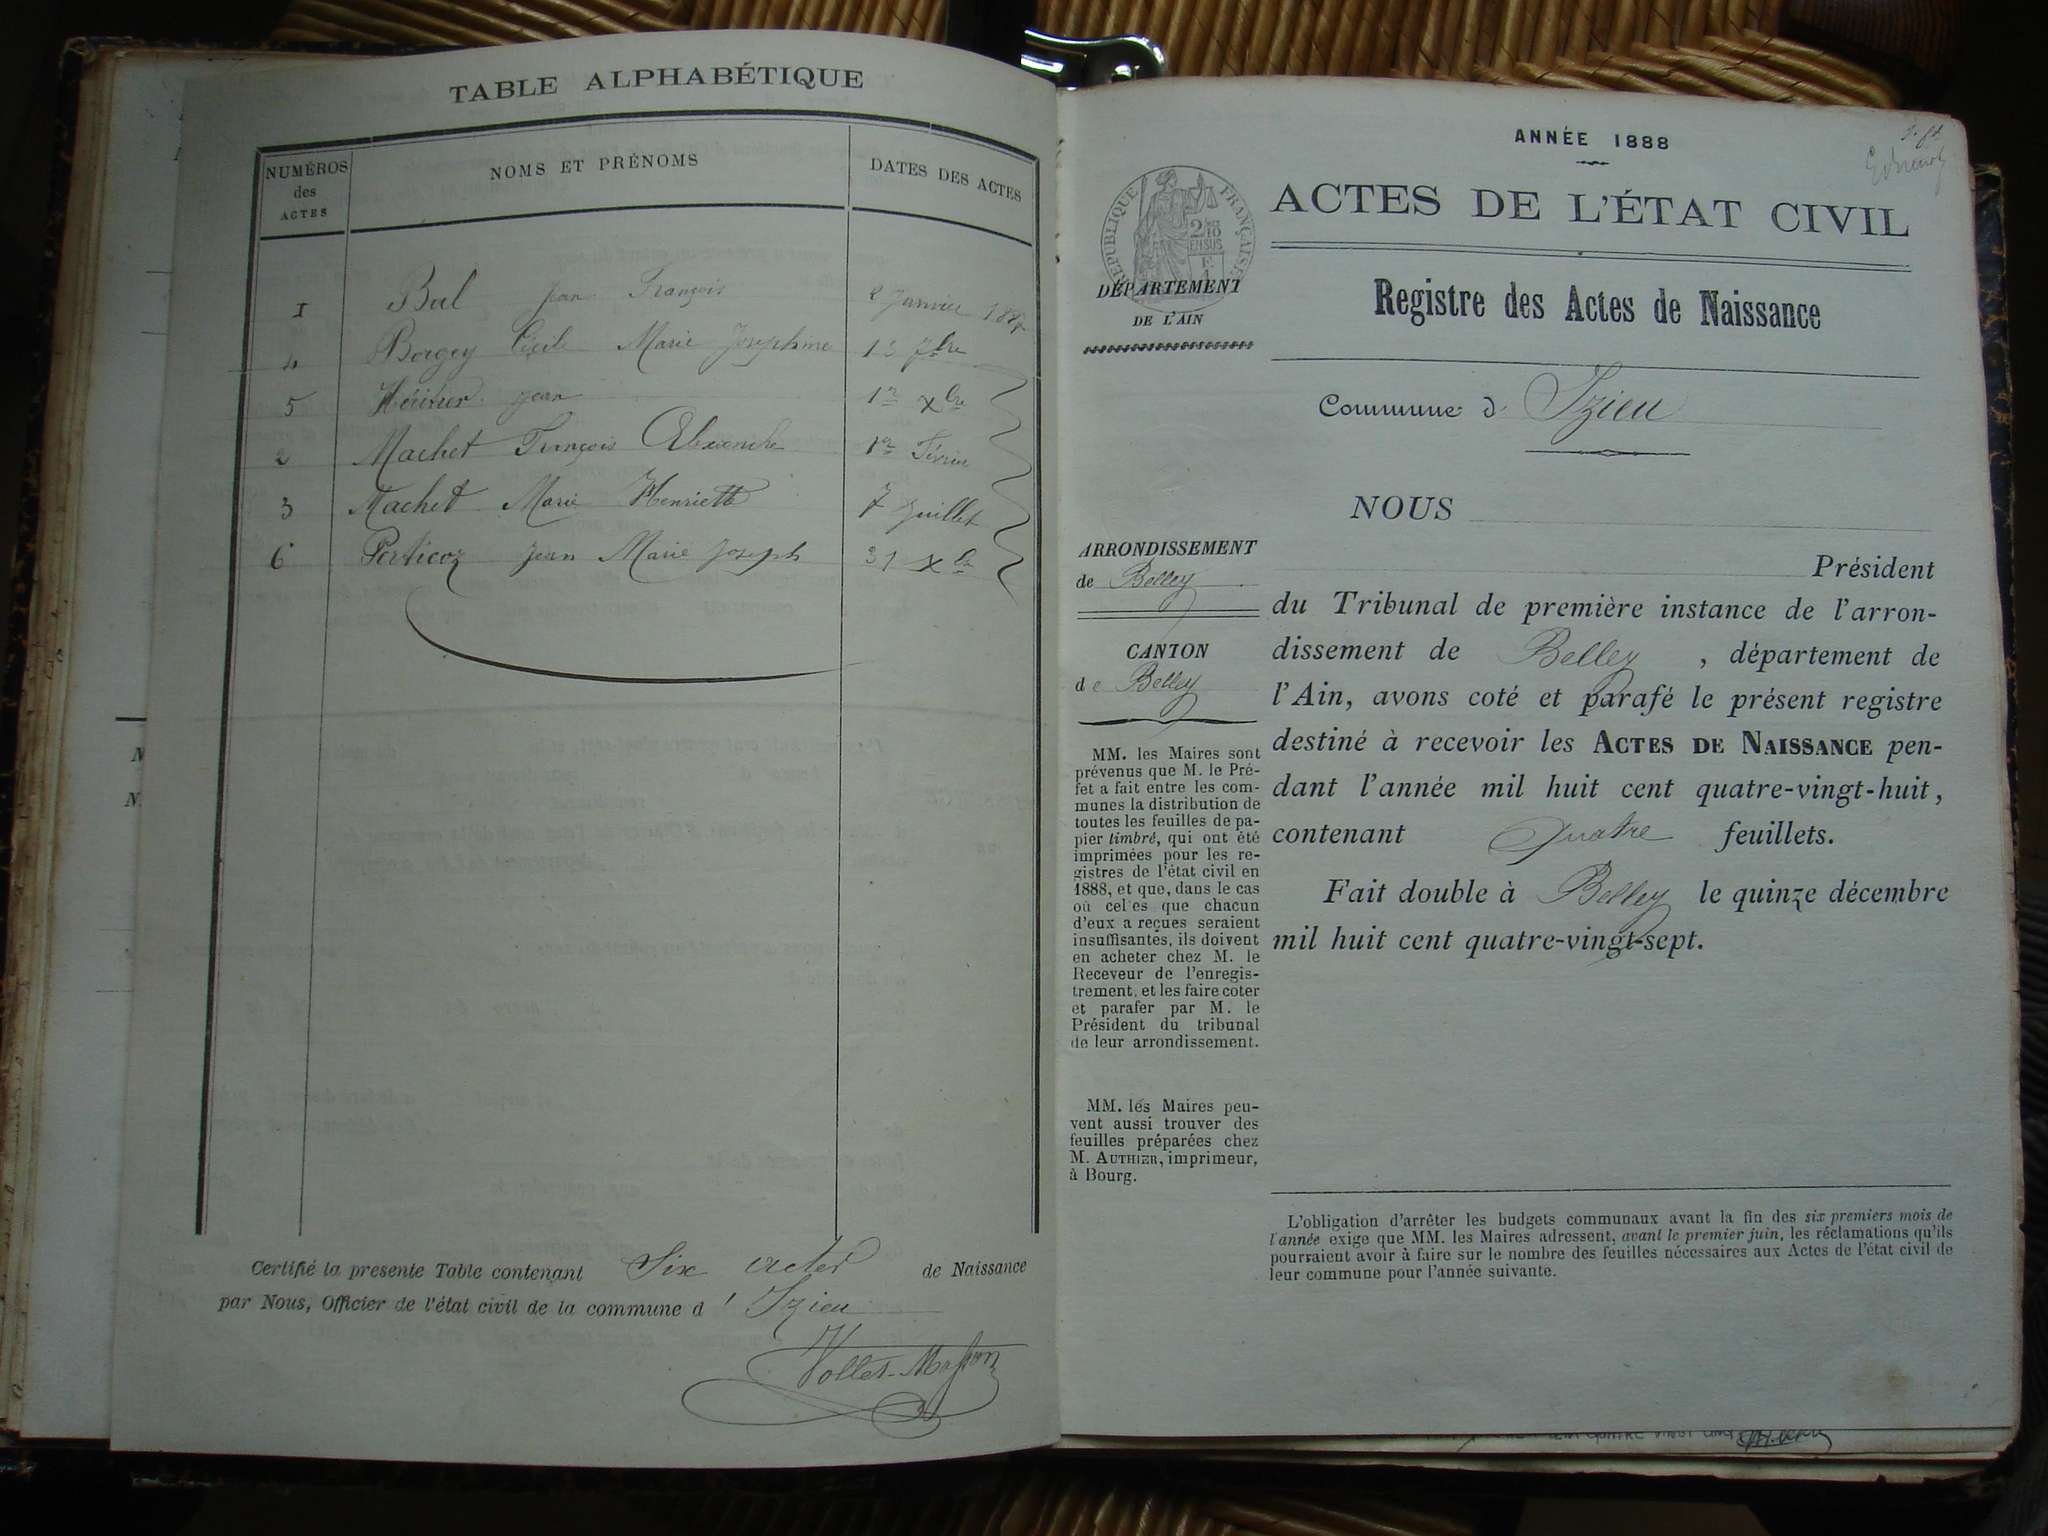 TABLE ALPHABÉTIQUE
NUMÉROS des ACTES
NOMS ET PRÉNOMS
DATES DES ACTES
1 Bul Jean François 2 Janvier 1887
4 Borgey Cécile Marie Joséphine 7bre
5 Héritier Jean xbre
2 Machet François Alexandre 1er Février
3 Machet Marie Henriette 7 Juillet
6 Perticoz Jean Marie Joseph 31 xbre
Certifié la presente Table contenant Six actes de Naissance
par Nous, Officier de l'état civil de la commune d'Izieu
Vollet-Masson
ANNÉE 1888
ACTES DE L'ÉTAT CIVIL
RÉPUBLIQUE FRANÇAISE
DÉPARTEMENT
DE L'AIN
Registre des Actes de Naissance
Commune d'Izieu
NOUS
ARRONDISSEMENT
de Belley
CANTON
de Belley
MM. les Maires sont
prévenus que M. le Pré-
fet a fait entre les com-
munes la distribution de
toutes les feuilles de pa-
pier timbré, qui ont été
imprimées pour les re-
gistres de l'état civil en
1888, et que, dans le cas
où celles que chacun
d'eux a reçues seraient
insuffisantes, ils doivent
en acheter chez M. le
Receveur de l'enregis-
trement, et les faire coter
et parafer par M. le
Président du tribunal
de leur arrondissement.
MM. les Maires peu-
vent aussi trouver des
feuilles préparées chez
M. AUTHIER, imprimeur,
à Bourg.
Président
du Tribunal de première instance de l'arron-
dissement de Belley, département de
l'Ain, avons coté et parafé le présent registre
destiné à recevoir les ACTES DE NAISSANCE pen-
dant l'année mil huit cent quatre-vingt-huit,
contenant Quatre feuillets.
Fait double à Belley le quinze décembre
mil huit cent quatre-vingt-sept.
L'obligation d'arrêter les budgets communaux avant la fin des six premiers mois de
l'année exige que MM. les Maires adressent, avant le premier juin, les réclamations qu'ils
pourraient avoir à faire sur le nombre des feuilles nécessaires aux Actes de l'état civil de
leur commune pour l'année suivante.